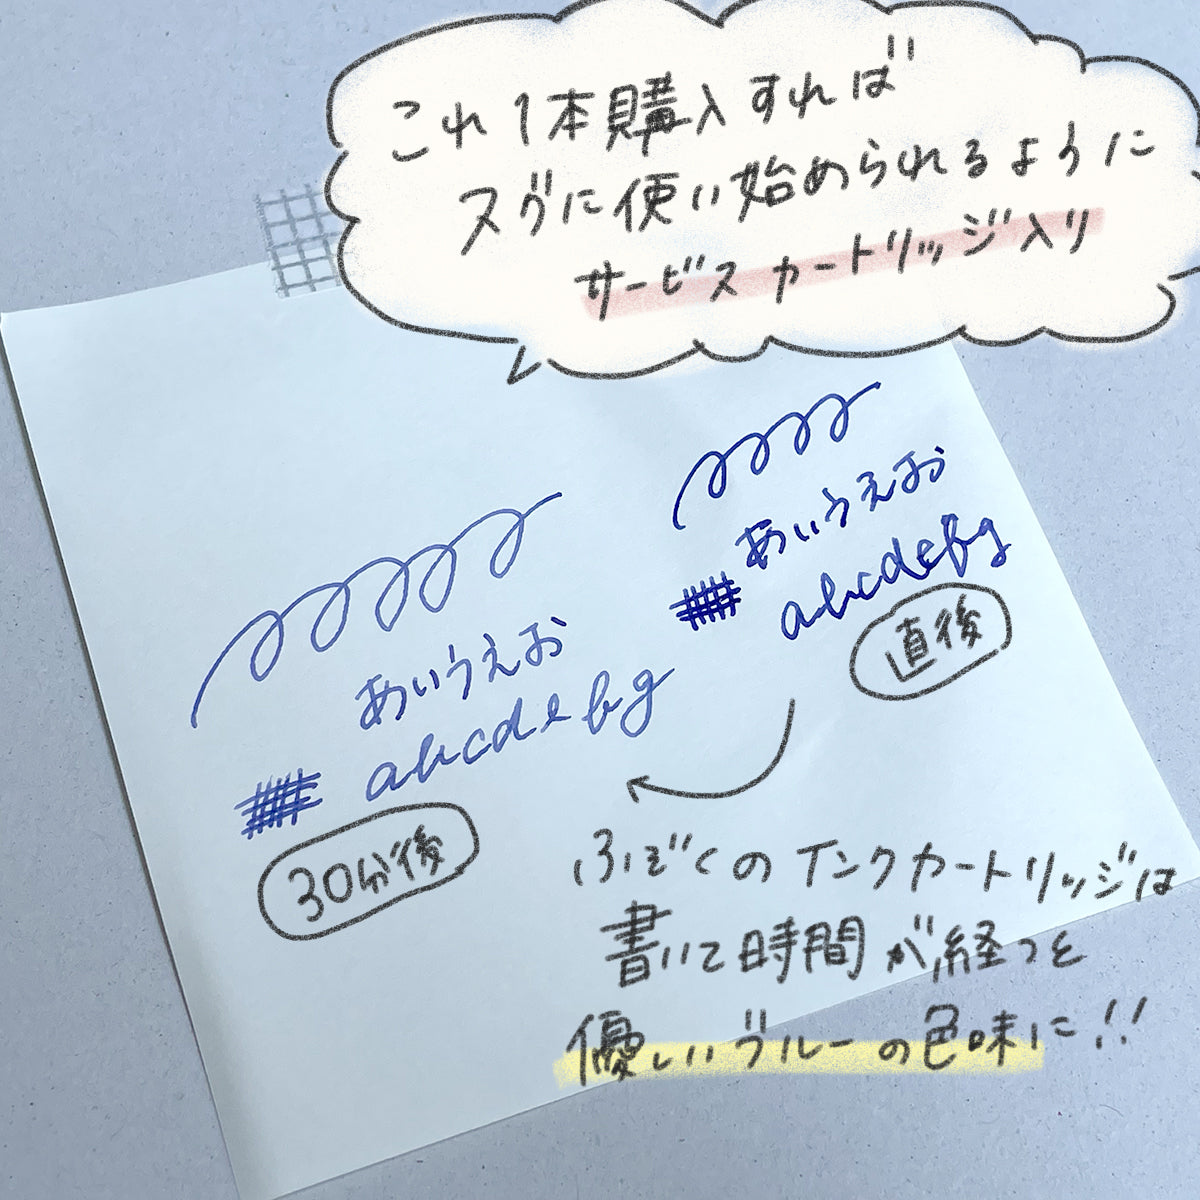 これ1本購入すれば
スグに使い始められるように
サービスカートリッジ入り
あいうえお
abcdefg
直後
あいうえお
abcdefg
30分後
ふぞくのインクカートリッジは
書いて時間が経つと
優しいブルーの色味に!!